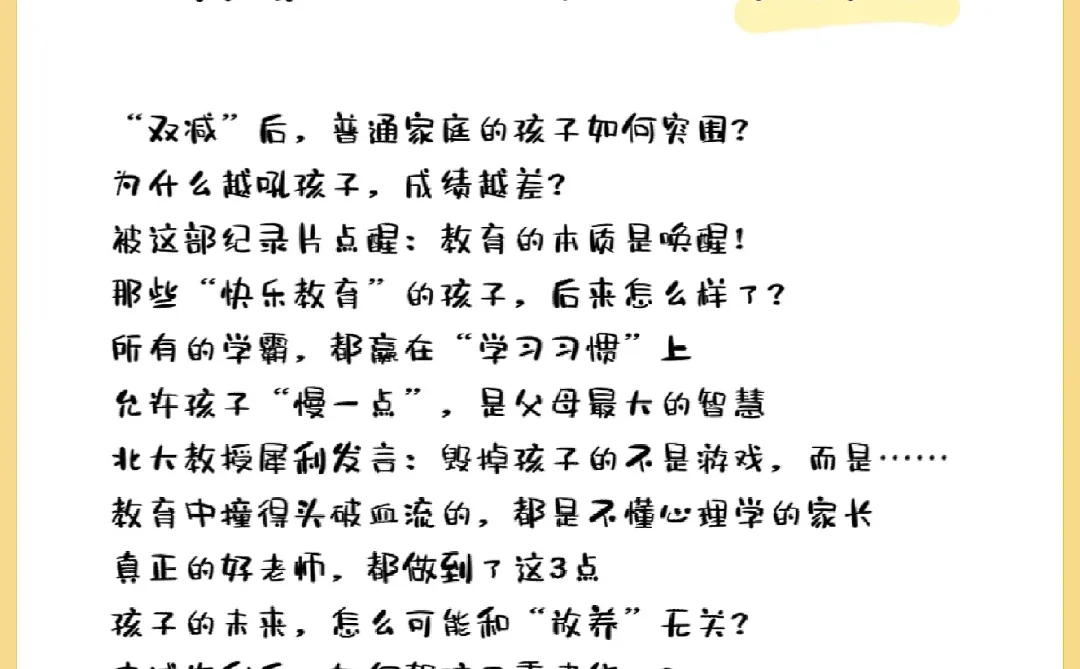 “双减”后，普通家庭的孩子如何突围？
为什么越吼孩子，成绩越差？
被这部纪录片点醒：教育的本质是唤醒！
那些“快乐教育”的孩子，后来怎么样了？
所有的学霸，都赢在“学习习惯”上
允许孩子“慢一点”，是父母最大的智慧
北大教授犀利发言：毁掉孩子的不是游戏，而是……
教育中撞得头破血流的，都是不懂心理学的家长
真正的好老师，都做到了这3点
孩子的未来，怎么可能和“放养”无关？